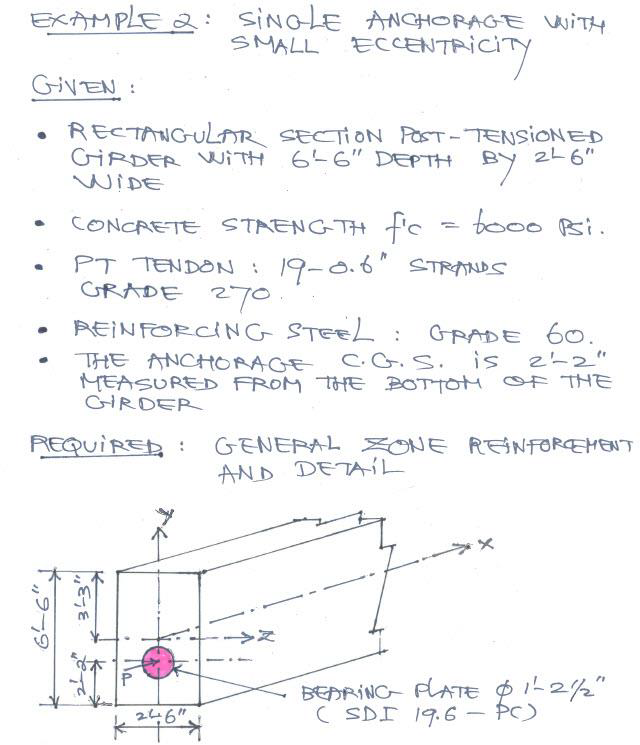 EXAMPLE 2: SINGLE ANCHORAGE WITH
SMALL ECCENTRICITY
GIVEN:
• RECTANGULAR SECTION POST-TENSIONED
GIRDER WITH 6'-6" DEPTH BY 2'-6"
WIDE
• CONCRETE STRENGTH f'c = 6000 PSi.
• PT TENDON: 19-0.6" STRANDS
GRADE 270.
• REINFORCING STEEL: GRADE 60.
• THE ANCHORAGE C.G.S. is 2'-2"
MEASURED FROM THE BOTTOM OF THE
GIRDER
REQUIRED: GENERAL ZONE REINFORCEMENT
AND DETAIL
y
x
6'-6"
3'-3"
z
2'-2"
P
2'-6"
BEARING PLATE φ 1'-2 1/2"
(SDI 19.6-PC)